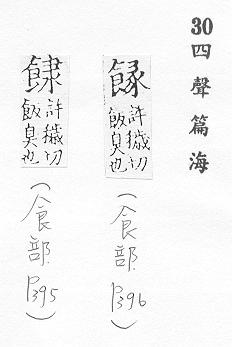 30四聲篇海
餯
許穢切
飯臭也
(食部 P396)
許穢切
飯臭也
(食部 P395)